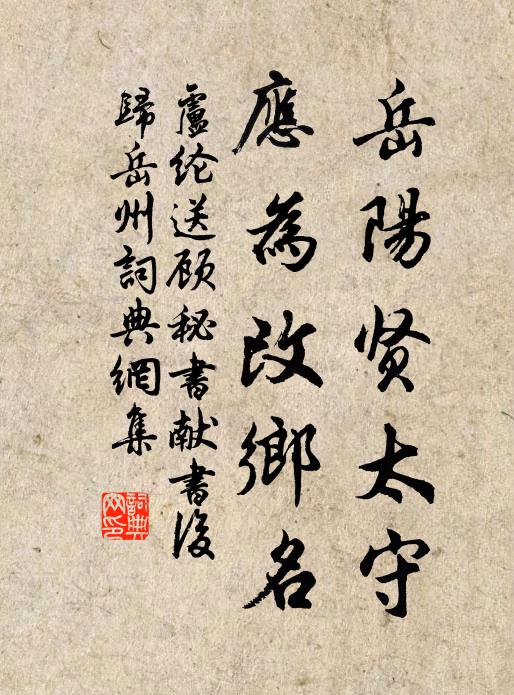 岳陽贤太守
應為改鄉名
盧纶送顾秘書献書後
歸岳州詞典網集
詞典网印